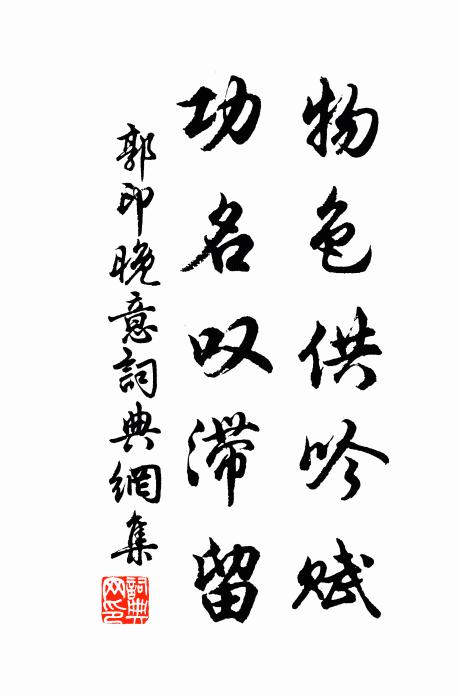 物色供吟赋
功名叹滞留
郭印晚意詞典網集
詞典网印